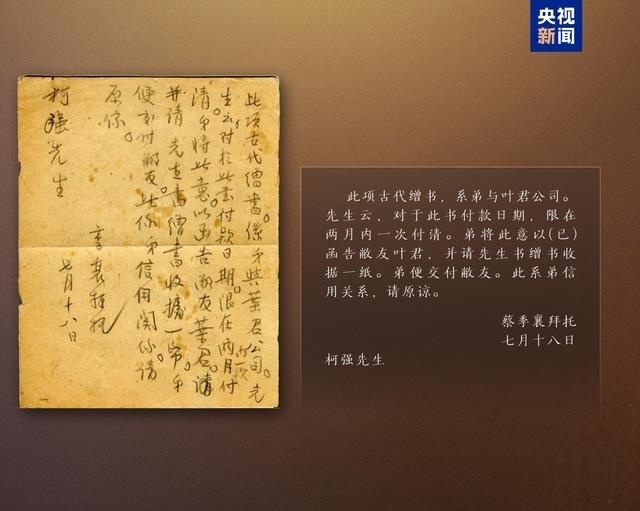 央视
新闻
此項古代繒書。係弟與葉君公司。先
生云。对於此書付款日期。限在两月内一次付
清。弟將此意以函告敝友葉君。
并请 先生書繒書收據一帋。弟
便交付敝友。此係弟信用関係。请
原谅。
季襄拜託
七月十八日
柯强先生
此项古代缯书，系弟与叶君公司。
先生云，对于此书付款日期，限在
两月内一次付清。弟将此意以(已)
函告敝友叶君，并请先生书缯书收
据一纸。弟便交付敝友。此系弟信
用关系，请原谅。
蔡季襄拜托
七月十八日
柯强先生